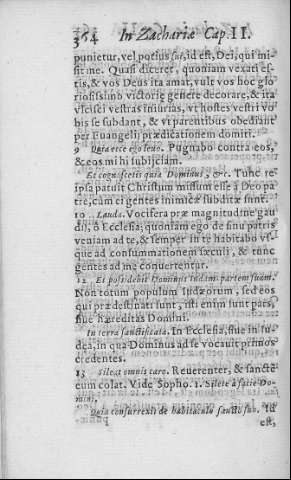 354 In Zachariæ Cap. II.
punietur, vel potius sui, id est, Dei, qui mi-
sit me. Quasi diceret, quoniam vexati es-
tis, & vos Deus ita amat, vult vos hoc glo
riosissimo victoriæ genere decorare, & ita
vlcisci vestras iniurias, vt hostes vestri vo
bis se subdant, & vt parentibus obediant
per Euangelij prædicationem domiti.
9 Quia ecce ego leuo. Pugnabo contra eos,
& eos mihi subijciam.
Et cognoscetis quia Dominus, &c. Tunc re
ipsa patuit Christum missum esse à Deo pa
tre, cum ei gentes inimicæ subditæ sunt.
10 Lauda. Vocifera præ magnitudine gau
dij, ô Ecclesia; quoniam ego de sinu patris
veniam ad te, & semper in te habitabo vs-
que ad consummationem sæculi, & tunc
gentes ad me conuertentur.
12 Et possidebit Dominus Iudam partem suam.
Non totum populum Iudæorum, sed eos
qui prædestinati sunt, isti enim sunt pars,
siue hæreditas Domini.
In terra sanctificata. In Ecclesia, siue in Iu-
dea, in qua Dominus ad se vocauit primos
credentes.
13 Sileat omnis caro. Reuerenter, & sanctè
eum colat. Vide Sopho. 1. Silete à facie Do-
mini,
Quia consurrexit de habitaculo sancto suo. Id
est,